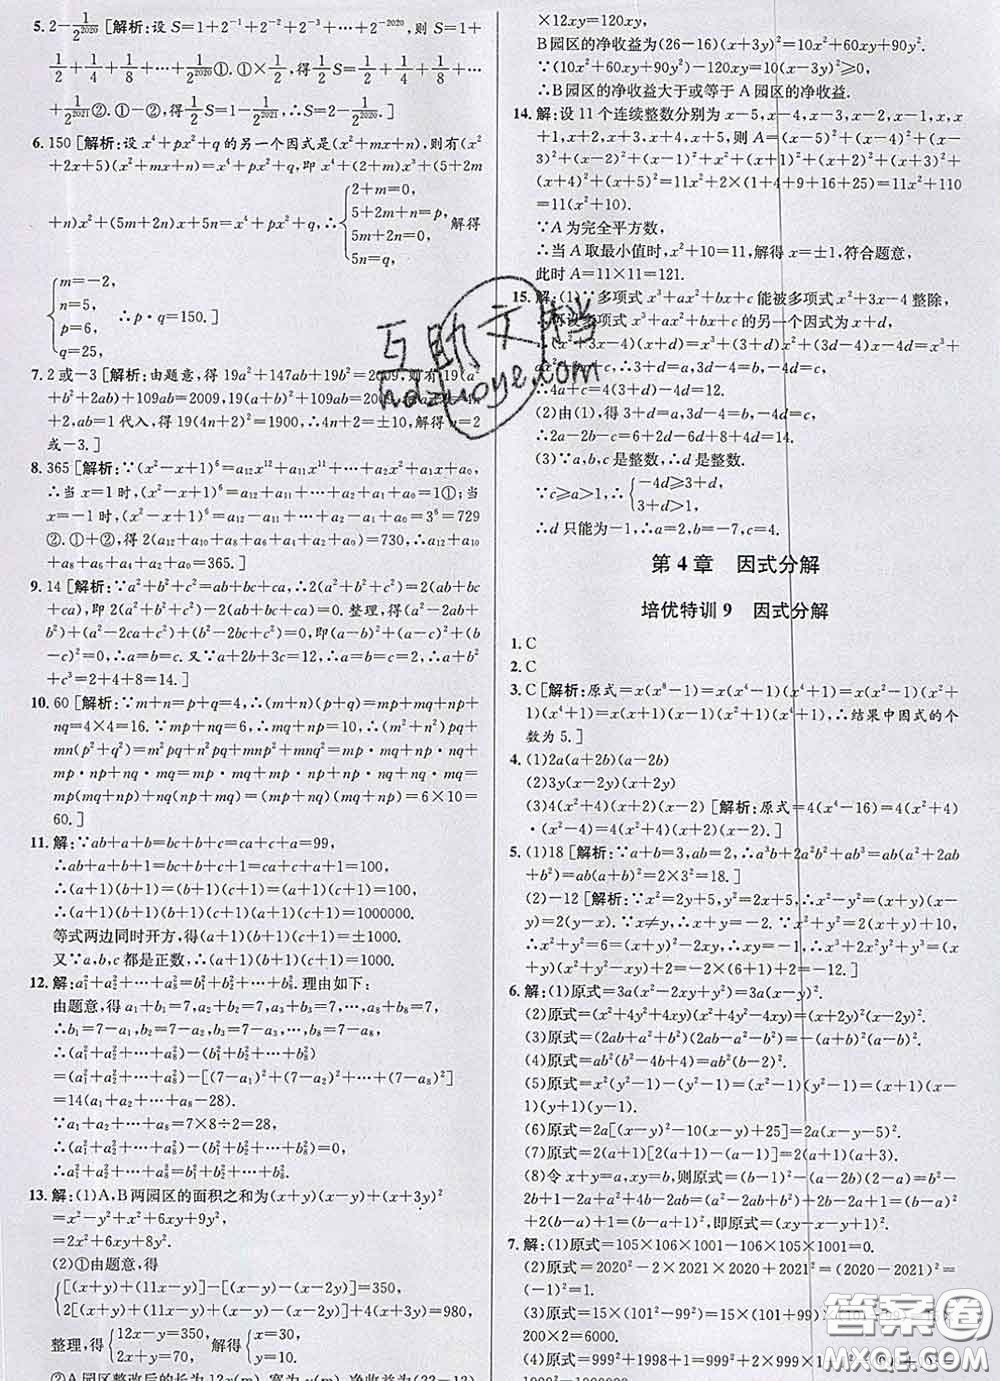 5. 2－1/2^2020 [解析:设 S=1+2^-1+2^-2+2^-3+…+2^-2020, 则 S=1+
1/2+1/4+1/8+…+1/2^2020①.①×1/2,得1/2S=1/2+1/4+1/8+…
+1/2^2021②.①－②,得1/2S=1－1/2^2021,∴S=2－1/2^2020.]
6. 150 [解析:设 x^4+px^2+q 的另一个因式是(x^2+mx+n),则有(x^2
+2x+5)(x^2+mx+n)=x^4+px^2+q,即 x^4+(2+m)x^3+(5+2m
+n)x^2+(5m+2n)x+5n=x^4+px^2+q,∴{2+m=0, 5+2m+n=p, 5m+2n=0, 5n=q, 解得
{m=－2, n=5, p=6, q=25, ∴p·q=150.]
7. 2 或－3 [解析:由题意,得 19a^2+147ab+19b^2=2009,则有 19(a^2
+b^2+2ab)+109ab=2009,19(a+b)^2+109ab=2009, 4n
+2,ab=1 代入,得 19(4n+2)^2=1900,∴4n+2=±10,解得 n=2
或－3.]
8. 365 [解析:∵(x^2－x+1)^6=a12x^12+a11x^11+…+a2x^2+a1x+a0,
∴当 x=1 时,(x^2－x+1)^6=a12+a11+…+a2+a1+a0=1①;当
x=－1 时,(x^2－x+1)^6=a12－a11+…+a2－a1+a0=3^6=729
②.①+②,得 2(a12+a10+a8+a6+a4+a2+a0)=730,∴a12+a10+
a8+a6+a4+a2+a0=365.]
9. 14 [解析:∵a^2+b^2+c^2=ab+bc+ca,∴2(a^2+b^2+c^2)=2(ab+bc
+ca),即 2(a^2+b^2+c^2)－2(ab+bc+ca)=0.整理,得(a^2－2ab+
b^2)+(a^2－2ca+c^2)+(b^2－2bc+c^2)=0,即(a－b)^2+(a－c)^2+
(b－c)^2=0,∴a=b=c.又∵a+2b+3c=12,∴a=b=c=2,∴a+b^2
+c^3=2+4+8=14.]
10. 60 [解析:∵m+n=p+q=4,∴(m+n)(p+q)=mp+mq+np+
nq=4×4=16.∵mp+nq=6,∴mq+np=10,∴(m^2+n^2)pq+
mn(p^2+q^2)=m^2pq+n^2pq+mnp^2+mnq^2=mp·mq+np·nq+
mp·np+nq·mq=mp·mq+mp·np+np·nq+nq·mq=
mp(mq+np)+nq(np+mq)=(mp+nq)(mq+np)=6×10=
60.]
11. 解:∵ab+a+b=bc+b+c=ca+c+a=99,
∴ab+a+b+1=bc+b+c+1=ca+c+a+1=100,
∴(a+1)(b+1)=(b+1)(c+1)=(a+1)(c+1)=100,
∴(a+1)(b+1)(b+1)(c+1)(a+1)(c+1)=1000000.
等式两边同时开方,得(a+1)(b+1)(c+1)=±1000.
又∵a,b,c 都是正数,∴(a+1)(b+1)(c+1)=1000.
12. 解:a1^2+a2^2+…+a8^2=b1^2+b2^2+…+b8^2.理由如下:
由题意,得 a1+b1=7,a2+b2=7,a3+b3=7,…,a8+b8=7,
∴b1=7－a1,b2=7－a2,b3=7－a3,…,b8=7－a8,
∴(a1^2+a2^2+…+a8^2)－(b1^2+b2^2+…+b8^2)
=(a1^2+a2^2+…+a8^2)－[(7－a1)^2+(7－a2)^2+…+(7－a8)^2]
=14(a1+a2+…+a8－28).
∵a1+a2+…+a8=7×8÷2=28,
∴(a1^2+a2^2+…+a8^2)－(b1^2+b2^2+…+b8^2)=0,
∴a1^2+a2^2+…+a8^2=b1^2+b2^2+…+b8^2.
13. 解:(1)A,B 两园区的面积之和为(x+y)(x－y)+(x+3y)^2
=x^2－y^2+x^2+6xy+9y^2,
=2x^2+6xy+8y^2.
(2)①由题意,得
{[(x+y)+(11x－y)]－[(x－y)－(x－2y)]=350,
2[(x+y)+(11x－y)+(x－y)－(x－2y)]+4(x+3y)=980,
整理,得{12x－y=350, 2x+7y=70, 解得{x=30, y=10.
②A 园区整改后的长为 12x(m),宽为 y(m),净收益为(22－12)
×12xy=120xy,
B园区的净收益为(26－16)(x+3y)^2=10x^2+60xy+90y^2.
∵(10x^2+60xy+90y^2)－120xy=10(x－3y)^2≥0,
∴B园区的净收益大于或等于 A 园区的净收益.
14. 解:设 11 个连续整数分别为 x－5,x－4,x－3,x－2,x－1,x,x
+1,x+2,x+3,x+4,x+5,则 A=(x－5)^2+(x－4)^2+(x－
3)^2+(x－2)^2+(x－1)^2+x^2+(x+1)^2+(x+2)^2+(x+3)^2+
(x+4)^2+(x+5)^2=11x^2+2×(1+4+9+16+25)=11x^2+110
=11(x^2+10).
∵A 为完全平方数,
∴当 A 取最小值时,x^2+10=11,解得 x=±1,符合题意,
此时 A=11×11=121.
15. 解:(1)∵多项式 x^3+ax^2+bx+c 能被多项式 x^2+3x－4 整除,
∴可设多项式 x^3+ax^2+bx+c 的另一个因式为 x+d,
∴(x^2+3x－4)(x+d)=x^3+(3+d)x^2+(3d－4)x－4d=x^3+
∴4a+c=4(3+d)－4d=12.
(2)由(1),得 3+d=a,3d－4=b,－4d=c,
∴2a－2b－c=6+2d－6d+8+4d=14.
(3)∵a,b,c 是整数,∴d 是整数.
∵c≥a>1,∴{－4d≥3+d, 3+d>1,
∴d 只能为－1,∴a=2,b=－7,c=4.
第 4 章 因式分解
培优特训 9 因式分解
1. C
2. C
3. C [解析:原式=x(x^8－1)=x(x^4－1)(x^4+1)=x(x^2－1)(x^2+
1)(x^4+1)=x(x+1)(x－1)(x^2+1)(x^4+1),∴结果中因式的个
数为 5.]
4. (1)2a(a+2b)(a－2b)
(2)3y(x－2y)(x+2y)
(3)4(x^2+4)(x+2)(x－2) [解析:原式=4(x^4－16)=4(x^2+4)
·(x^2－4)=4(x^2+4)(x+2)(x－2).]
5. (1)18 [解析:∵a+b=3,ab=2,∴a^3b+2a^2b^2+ab^3=ab(a^2+2ab
+b^2)=ab(a+b)^2=2×3^2=18.]
(2)－12 [解析:∵x^2=2y+5,y^2=2x+5,∴x^2－y^2=(x+y)(x－
y)=2(y－x).∵x≠y,∴x+y=－2.∵x^2+y^2=2(x+y)+10,
∴x^2+y^2=6=(x+y)^2－2xy,∴xy=－1,∴x^3+2x^2y^2+y^3=(x
+y)(x^2－xy+y^2)+2x^2y^2=－2×(6+1)+2=－12.]
6. 解:(1)原式=3a(x^2－2xy+y^2)=3a(x－y)^2.
(2)原式=(x^2+4y^2+4xy)(x^2+4y^2－4xy)=(x+2y)^2(x－2y)^2.
(3)原式=(2ab+a^2+b^2)(2ab－a^2－b^2)=－(a+b)^2(a－b)^2.
(4)原式=ab^2(b^2－4b+4)=ab^2(b－2)^2.
(5)原式=x^2(y^2－1)－(y^2－1)=(x^2－1)(y^2－1)=(x+1)(x－
1)(y+1)(y－1).
(6)原式=2a[(x－y)^2－10(x－y)+25]=2a(x－y－5)^2.
(7)原式=2(a+1)[2(a－1)－(a－5)]=2(a+1)(a+3).
(8)令 x+y=a,xy=b,则原式=(b－1)^2－(a－2b)(2－a)=b^2－
2b+1－2a+a^2+4b－2ab=(a^2－2ab+b^2)+2b－2a+1=(a－b)^2
+2(b－a)+1=(b－a+1)^2,即原式=(xy－x－y+1)^2.
7. 解:(1)原式=105×106×1001－106×105×1001=0.
(2)原式=2020^2－2×2021×2020+2021^2=(2020－2021)^2=
(－1)^2=1.
(3)原式=15×(101^2－99^2)=15×(101+99)×
200×2=6000.
(4)原式=999^2+1998+1=999^2+2×999